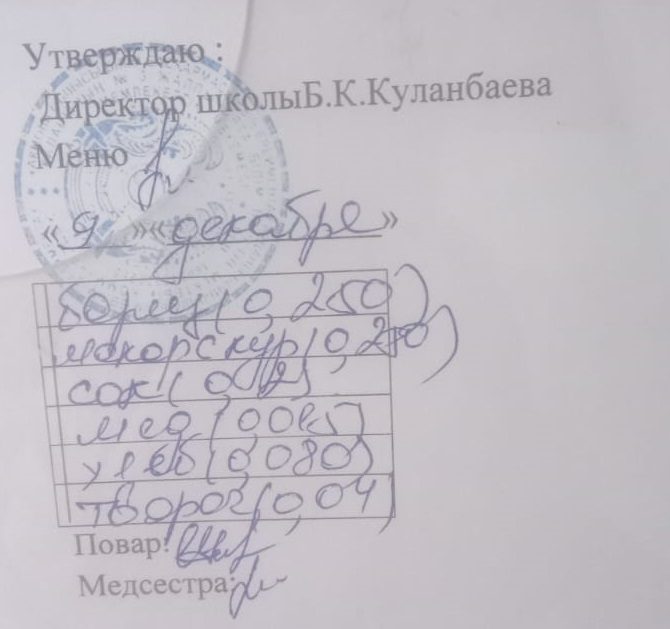 Утверждаю :
Директор школыБ.К.Куланбаева
Меню
«9» «декабре»
борщ (0,250)
макорскур (0,250)
сок (0,02)
мед (0,005)
хлеб (0,080)
творог (0,04)
Повар:
Медсестра: